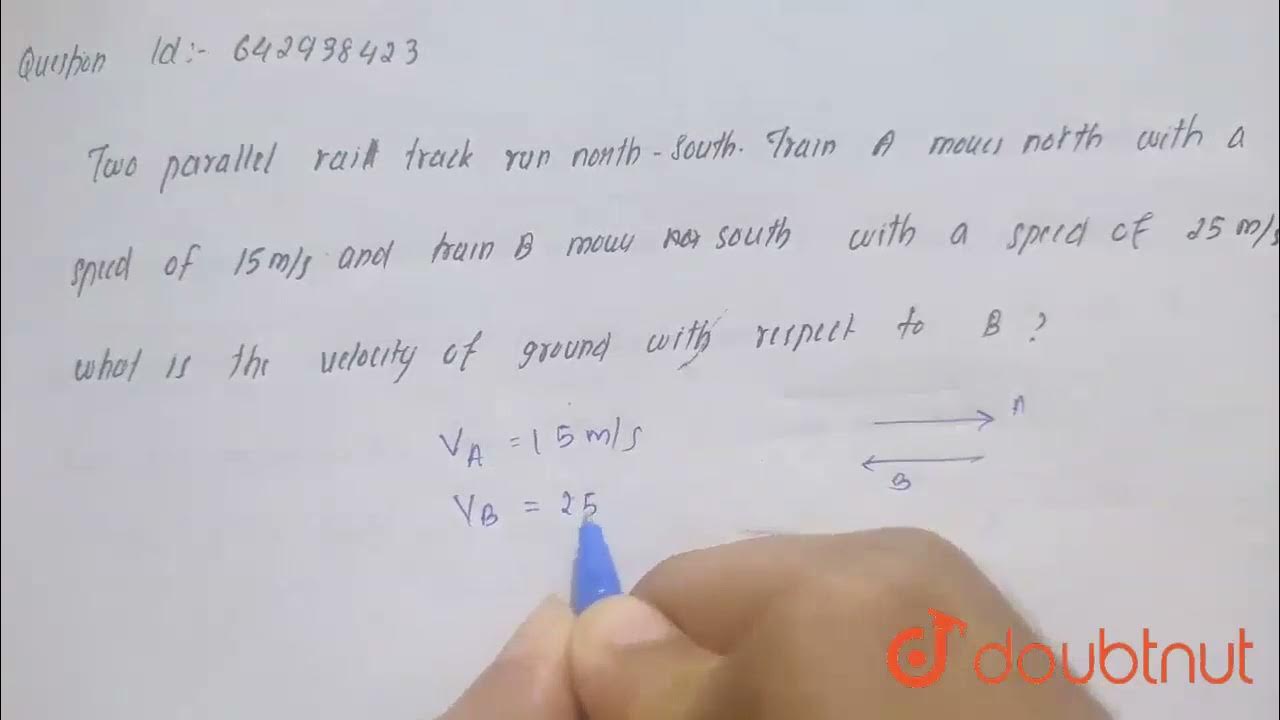 Question Id:- 642938423
Two parallel rail track run north-south. Train A moves north with a
speed of 15 m/s and train B moves south with a speed of 25 m/s
what is the velocity of ground with respect to B ?
VA = 15 m/s
A
VB = 25
B
doubtnut